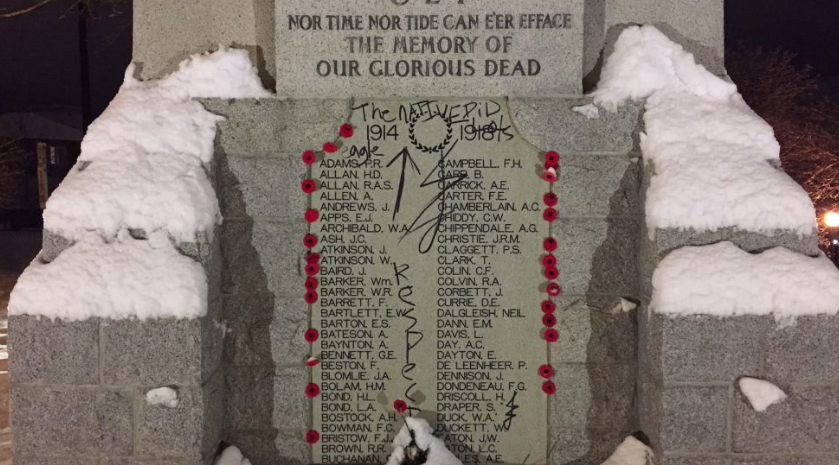 NOR TIME NOR TIDE CAN E'ER EFFACE
THE MEMORY OF
OUR GLORIOUS DEAD
The NATIVE
1914 1918
eagle
ADAMS, P.R.
ALLAN, H.D.
ALLAN, R.A.S.
ALLEN, A.
ANDREWS, J.
APPS, E.J.
ARCHIBALD, W.A.
ASH, J.C.
ATKINSON, J.
ATKINSON, W.
BAIRD, J.
BARKER, Wm.
BARKER, W.R.
BARRETT, F.
BARTLETT, E.W.
BARTON, E.S.
BATESON, A.
BAYNTON, A.
BENNETT, G.E.
BESTON, F.
BLOMLIE, J.A.
BOLAM, H.M.
BOND, H.L.
BOND, L.A.
BOSTOCK, A.H.
BOWMAN, F.C.
BRISTOW, F.J.
BROWN, R.R.
BUCHANAN,
Respect
CAMPBELL, F.H.
CARR, B.
CARRICK, A.E.
CARTER, F.E.
CHAMBERLAIN, A.C.
CHIDDY, C.W.
CHIPPENDALE, A.G.
CHRISTIE, J.R.M.
CLAGGETT, P.S.
CLARK, T.
COLIN, C.F.
COLVIN, R.A.
CORBETT, J.
CURRIE, D.E.
DALGLEISH, NEIL
DANN, E.M.
DAVIS, L.
DAY, A.C.
DAYTON, E.
DE LEENHEER, P.
DENNISON, J.
DONDENEAU, F.G.
DRISCOLL, H.
DRAPER, S.
DUCK, W.A.
DUCKETT, W.
EATON, J.W.
EATON, L.C.
A.E.